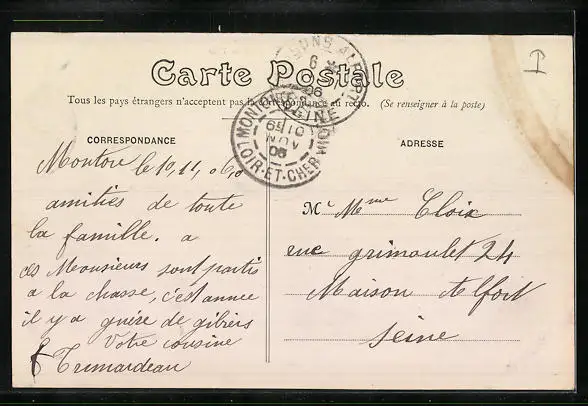 Carte Postale
Tous les pays étrangers n'acceptent pas la correspondance au recto. (Se renseigner à la poste)
CORRESPONDANCE
Montoire le 10, 11, 06,
amitiés de toute
la famille. a
ces Meousieurs sont partis
a la chasse, c'est annee
il y a guère de gibiers
Votre cousine
E Trimardeau
ADRESSE
M Meme Cloix
rue grimoulet 24
Maison Alfort
Seine
MONTOIRE
LOIR-ET-CHER
06